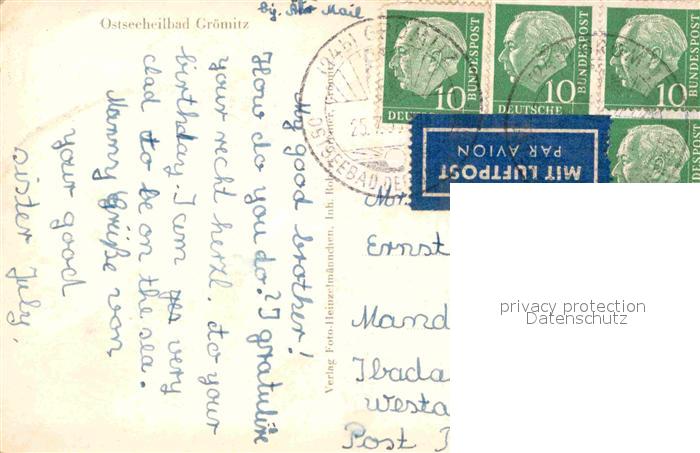 Ostseeheilbad Grömitz
By. Air Mail
My good brother!
How do you do? I gratuliere
your recht herzl. to your
birthday. I am yes very
clad to be on the sea.
Manny Grüße von
your good
sister July.
Verlag Foto-Heinzelmännchen, Inh. Ro
OSTSEEBAD
25.
10
DEUTSCHE
BUNDESPOST
10
DEUTSCHE
BUNDESPOST
10
BUNDESPOST
MIT LUFTPOST
PAR AVION
Mr.
Ernst
Mand
Ibada
Westa
Post
privacy protection
Datenschutz